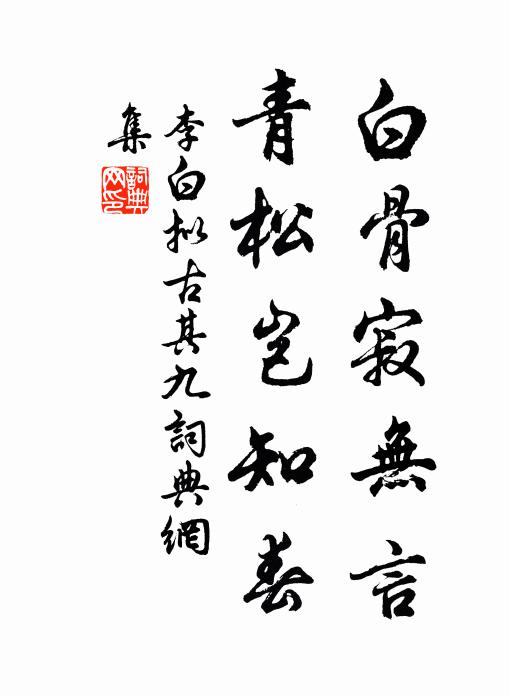 白骨寂無言
青松岂知春
李白拟古其九詞典網
集
詞典网印